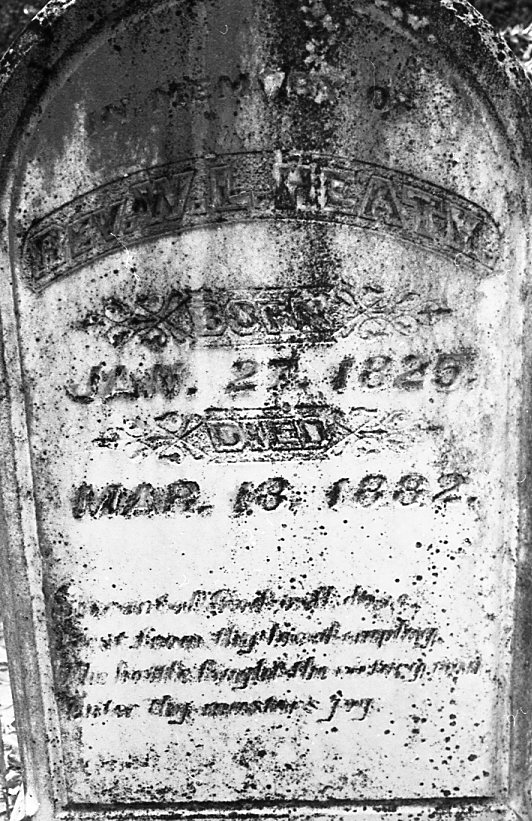 IN MEMORY OF
REV. W. L. HEATH
BORN
JAN. 27. 1825.
DIED
MAR. 13. 1882.
Servant of God well done,
Rest from thy loved employ.
The battle fought the victory won
Enter thy master's joy.